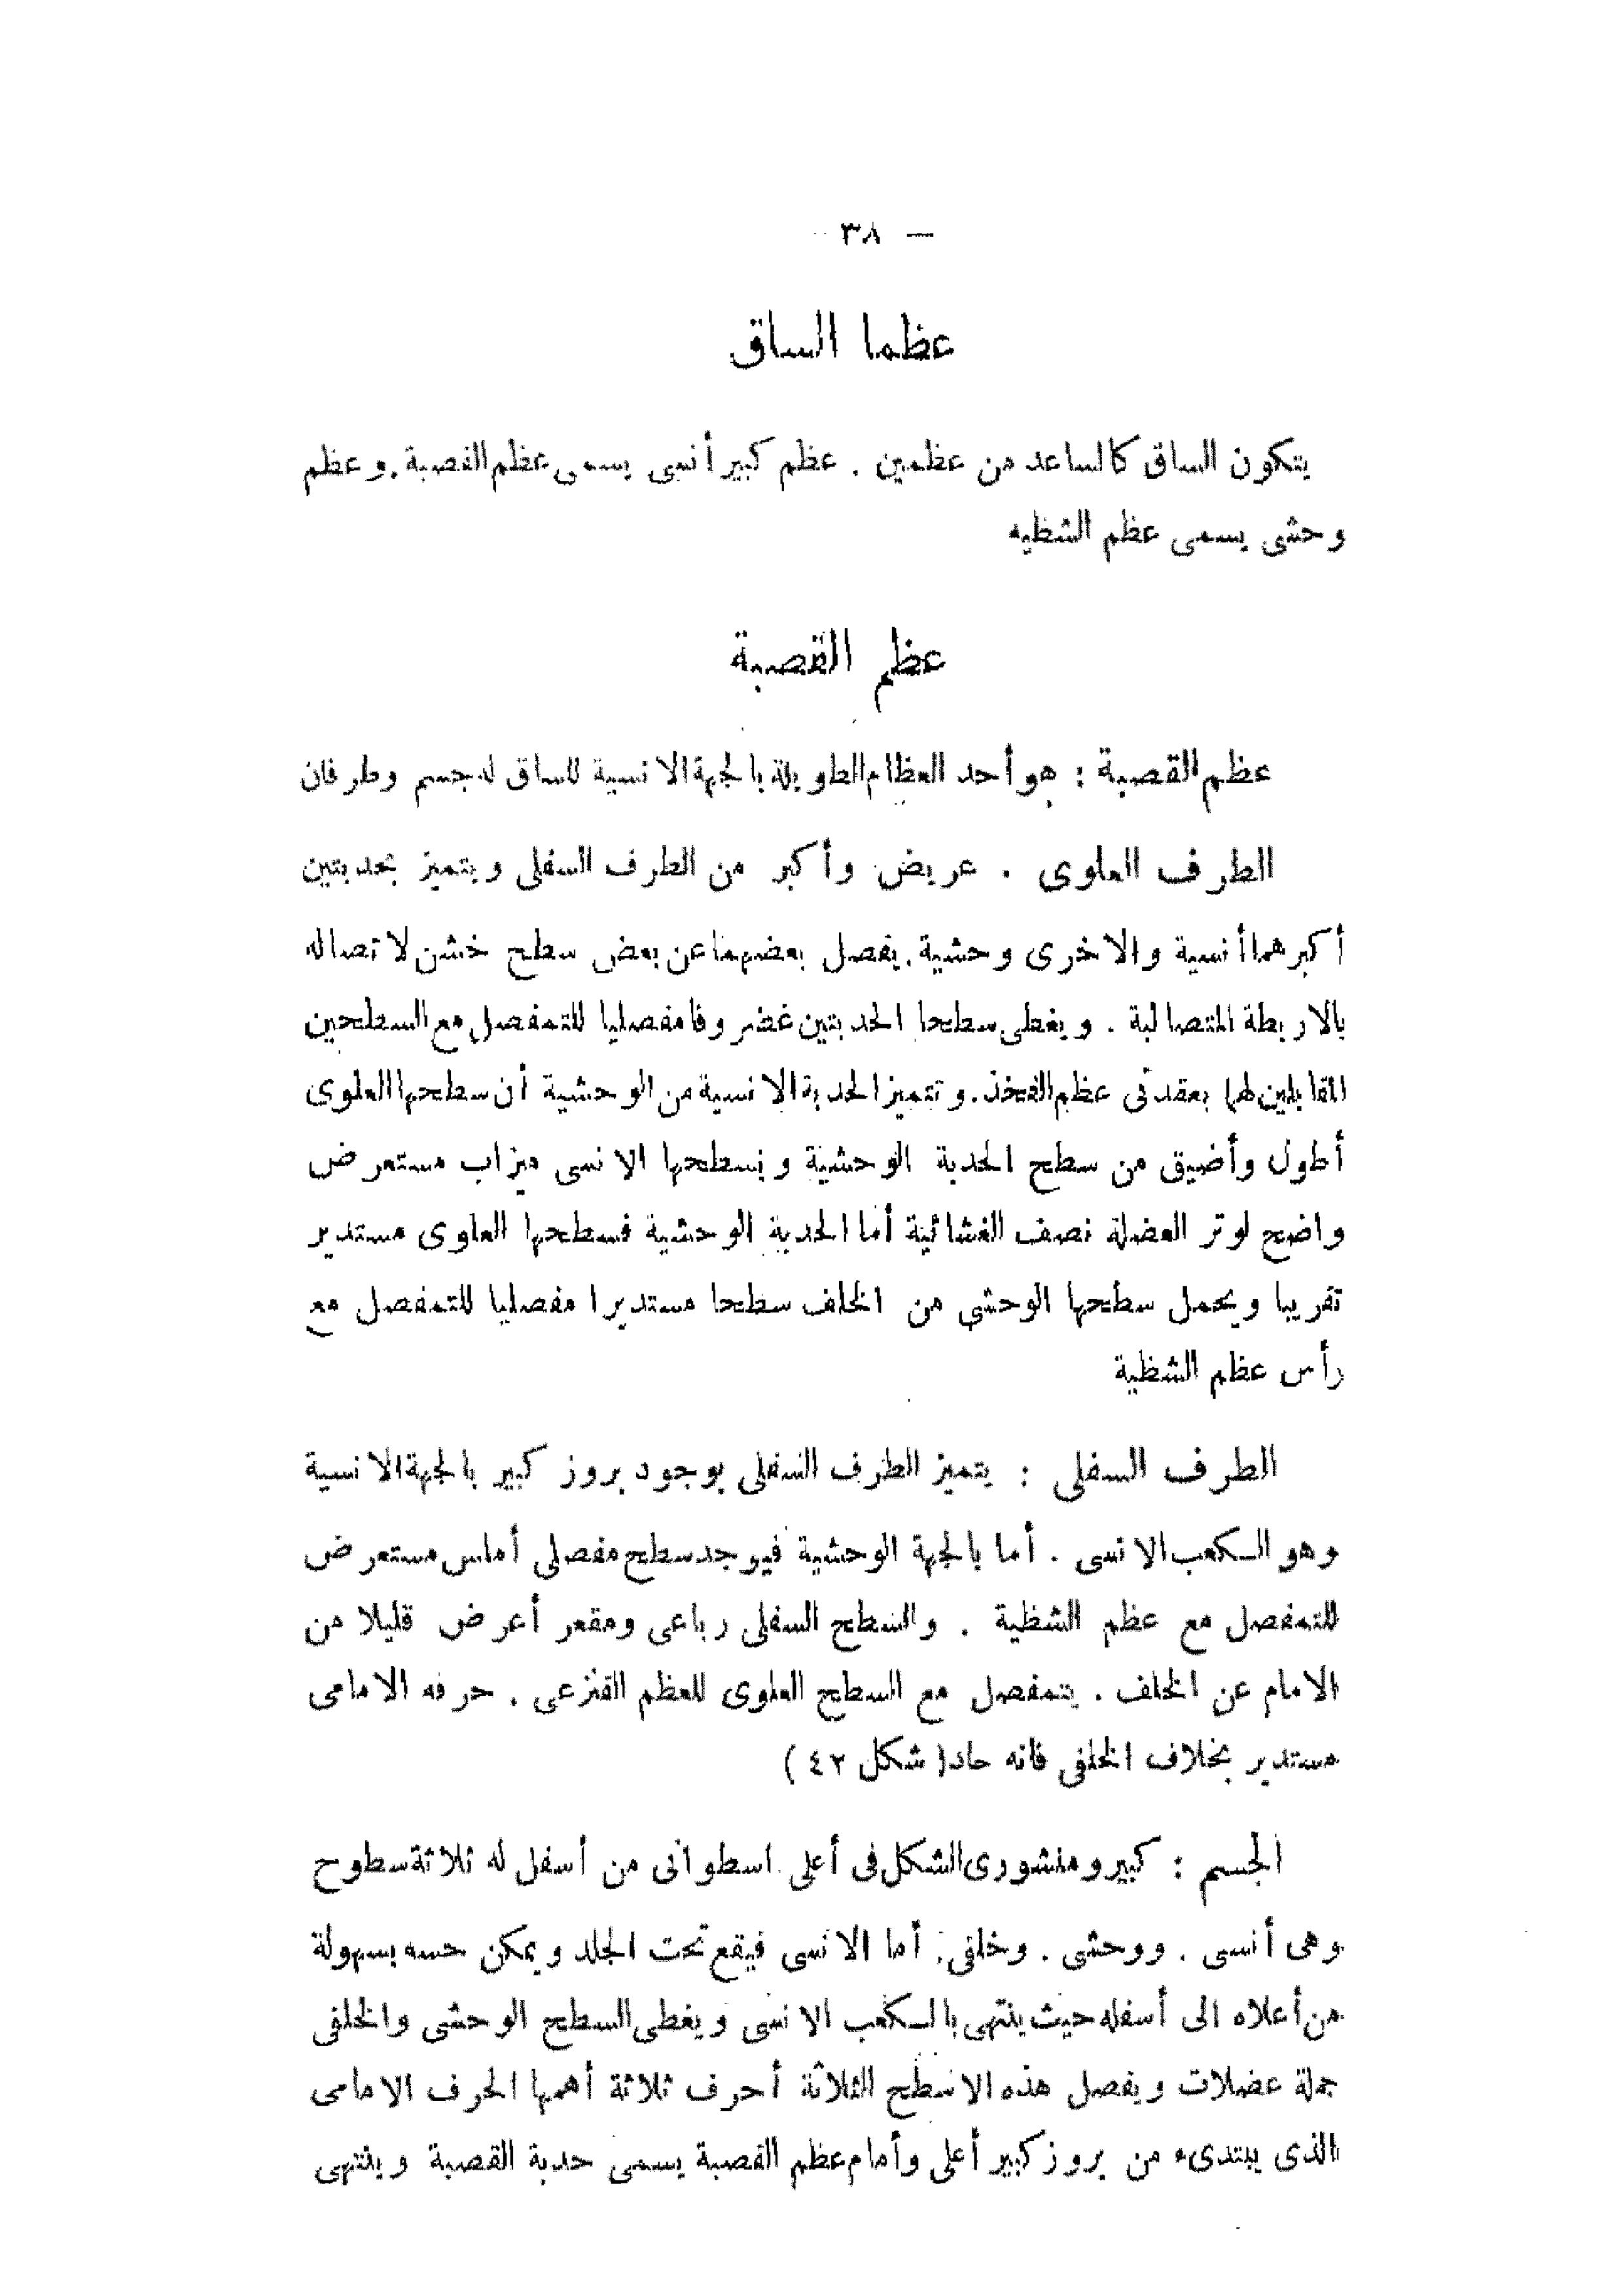 — ٣٨
عظما الساق
يتكون الساق كالساعد من عظمين . عظم كبير أنسى يسمى عظم القصبة . وعظم
وحشى يسمى عظم الشظيه
عظم القصبة
عظم القصبة : هو أحد العظام الطويلة بالجهة الانسية للساق له جسم وطرفان
الطرف العلوى . عريض وأكبر من الطرف السفلى ويتميز بحدبتين
أكبرهما أنسية والاخرى وحشية . يفصل بعضهما عن بعض سطح خشن لاتصاله
بالاربطة المتصالبة . ويغطى سطحا الحدبتين غضروفا مفصليا للتمفصل مع السطحين
المقابلين لهما بعقدتى عظم الفخذ . وتتميز الحدبة الانسية من الوحشية أن سطحها العلوى
أطول وأضيق من سطح الحدبة الوحشية وبسطحها الانسى ميزاب مستعرض
واضح لوتر العضلة نصف الغشائية أما الحدبة الوحشية فسطحها العلوى مستدير
تقريبا ويحمل سطحها الوحشى من الخلف سطحا مستديرا مفصليا للتمفصل مع
رأس عظم الشظية
الطرف السفلى : يتميز الطرف السفلى بوجود بروز كبير بالجهة الانسية
وهو الكعب الانسى . أما بالجهة الوحشية فيوجد سطح مفصلى أملس مستعرض
للتمفصل مع عظم الشظية . والسطح السفلى رباعى ومقعر أعرض قليلا من
الامام عن الخلف . يتمفصل مع السطح العلوى للعظم القنزعى . حرفه الامامى
مستدير بخلاف الخلفى فانه حاد ( شكل ٤٢ )
الجسم : كبير ومنشورى الشكل فى أعلى اسطوانى من أسفل له ثلاثة سطوح
وهى أنسى . ووحشى . وخلفى . أما الانسى فيقع تحت الجلد ويمكن حسه بسهولة
من أعلاه الى أسفله حيث ينتهى بالكعب الانسى ويغطى السطح الوحشى والخلفى
جملة عضلات ويفصل هذه الاسطح الثلاثة أحرف ثلاثة أهمها الحرف الامامى
الذى يبتدىء من بروز كبير أعلى وأمام عظم القصبة يسمى حدبة القصبة وينتهى